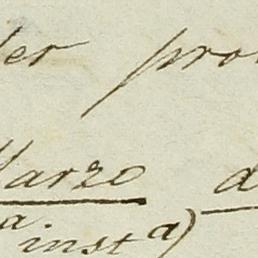 er pro
Marzo d
a inst a)